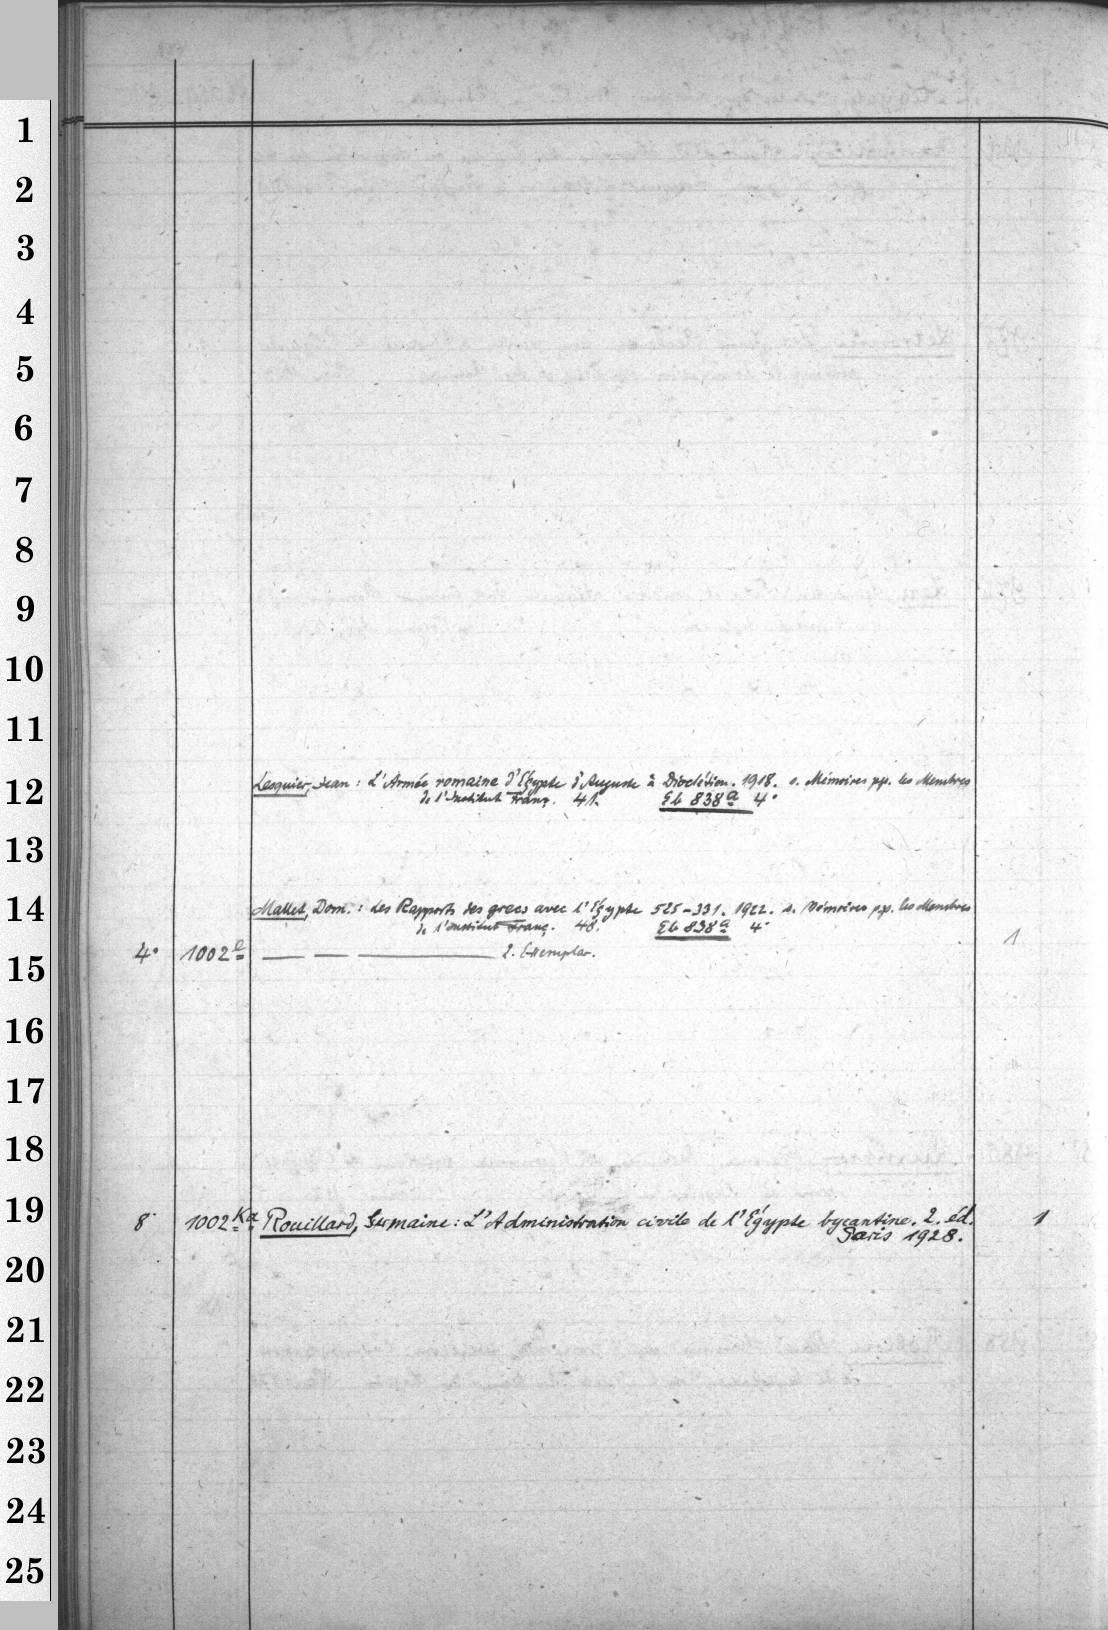 1
2
3
4
5
6
7
8
9
10
11
12
13
14
15
16
17
18
19
20
21
22
23
24
25
Lesquier, Jean: L'Armée romaine d'Égypte d'Auguste à Dioclétien. 1918. s. Mémoires pp. les Membres
de l'Institut Franç. 41. Eb 838a 4°
Mallet, Dom.: Les Rapports des grecs avec l'Égypte 525-331. 1922. s. Mémoires pp. les Membres
de l'Institut Franç. 48. Eb 838a 4°
4° 1002e — — — 2. Exemplar. 1
8° 1002Ka Rouillard, Germaine: L'Administration civile de l'Égypte bycantine. 2. éd. 1
Paris 1928.